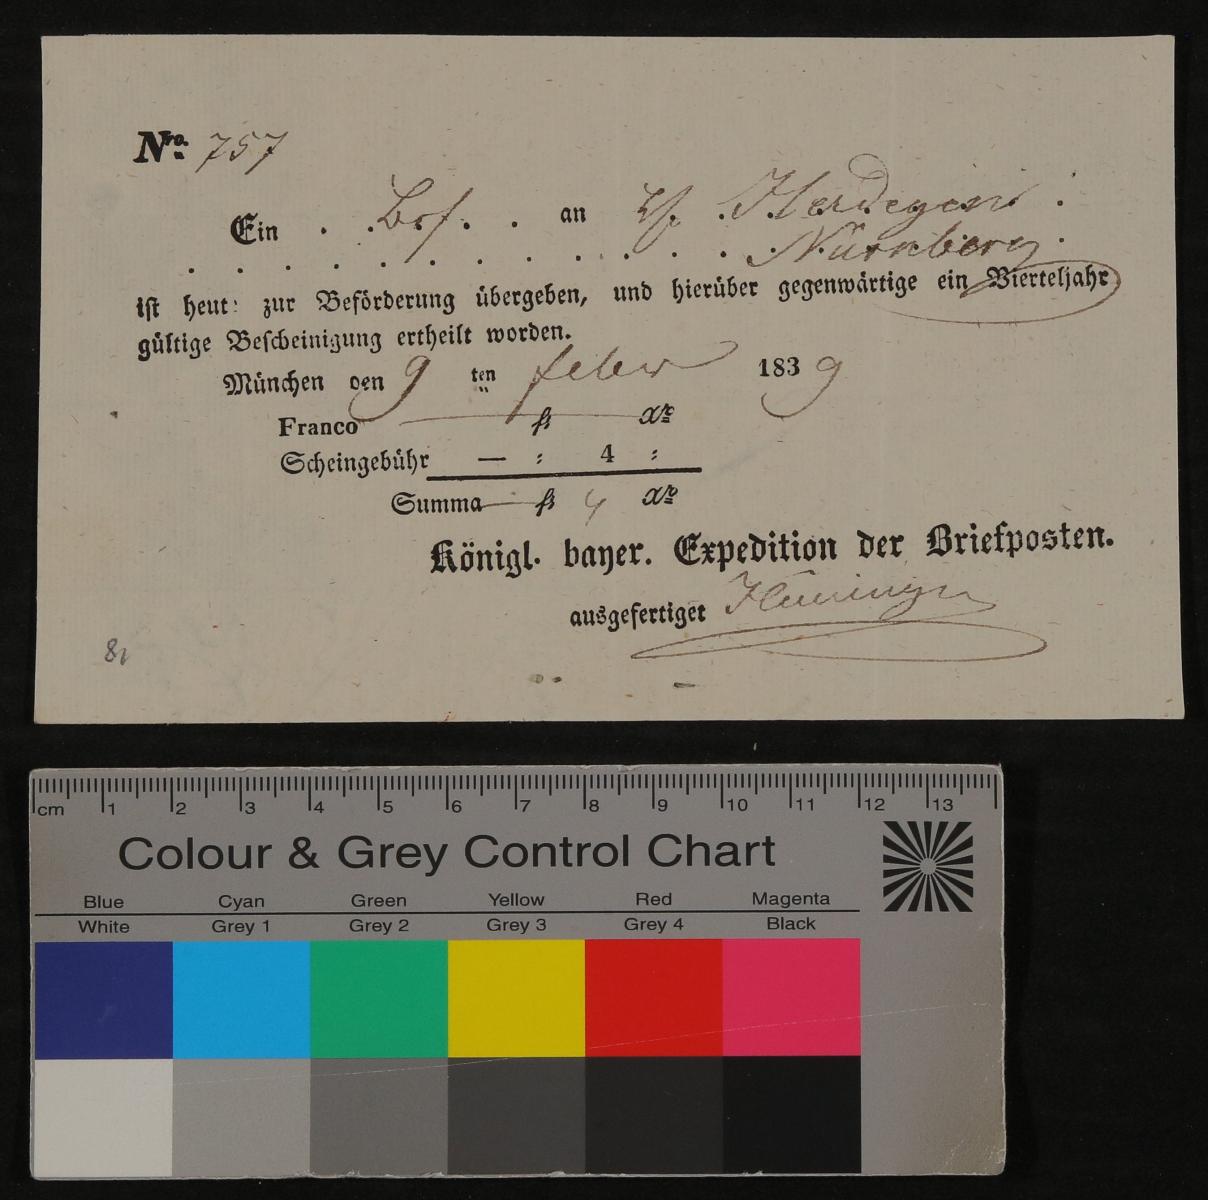 Nro. 757
Ein . . Brf. . . an Hf. Herdegen .
Nürnberg.
ist heut: zur Beförderung übergeben, und hierüber gegenwärtige ein Vierteljahr
gültige Bescheinigung ertheilt worden.
München den 9 ten Feber 1839
Franco — fl xr
Scheingebühr — : 4 :
Summa — fl 4 xr
Königl. bayer. Expedition der Briefposten.
ausgefertiget
81
cm 1 2 3 4 5 6 7 8 9 10 11 12 13
Colour & Grey Control Chart
Blue Cyan Green Yellow Red Magenta
White Grey 1 Grey 2 Grey 3 Grey 4 Black